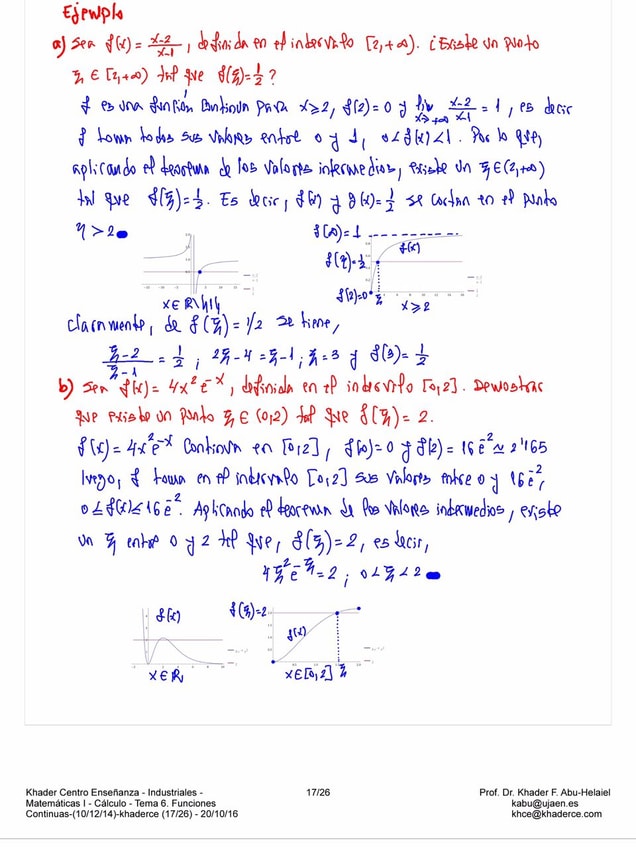 Ejemplo
a) Sea f(x) = (x-2)/(x-1), definida en el intervalo [2,+∞). ¿Existe un punto
ξ ∈ [2,+∞) tal que f(ξ) = 1/2 ?
f es una función continua para x≥2, f(2)=0 y lim x→+∞ (x-2)/(x-1) = 1, es decir
f toma todos sus valores entre 0 y 1, 0<f(x)<1. Por lo que,
aplicando el teorema de los valores intermedios, existe un ξ∈(2,+∞)
tal que f(ξ)=1/2. Es decir, f(x) y g(x)=1/2 se cortan en el punto
ξ>2
x∈ℝ\{1}
f(∞)=1
f(x)
f(ξ)=1/2
f(2)=0
ξ
x≥2
claramente, de f(ξ)=1/2 se tiene,
(ξ-2)/(ξ-1) = 1/2 ; 2ξ-4=ξ-1 ; ξ=3 y f(3)=1/2
b) Sea f(x) = 4x²e^-x, definida en el intervalo [0,2]. Demostrar
que existe un punto ξ∈(0,2) tal que f(ξ)=2.
f(x)=4x²e^-x continua en [0,2], f(0)=0 y f(2)=16e^-2≃2'165
luego, f toma en el intervalo [0,2] sus valores entre 0 y 16e^-2,
0≤f(x)≤16e^-2. Aplicando el teorema de los valores intermedios, existe
un ξ entre 0 y 2 tal que, f(ξ)=2, es decir,
4ξ²e^-ξ=2 ; 0<ξ<2
f(x)
x∈ℝ
f(ξ)=2
f(x)
x∈[0,2]
ξ
Khader Centro Enseñanza - Industriales -
Matemáticas I - Cálculo - Tema 6. Funciones
Continuas-(10/12/14)-khaderce (17/26) - 20/10/16
17/26
Prof. Dr. Khader F. Abu-Helaiel
kabu@ujaen.es
khce@khaderce.com